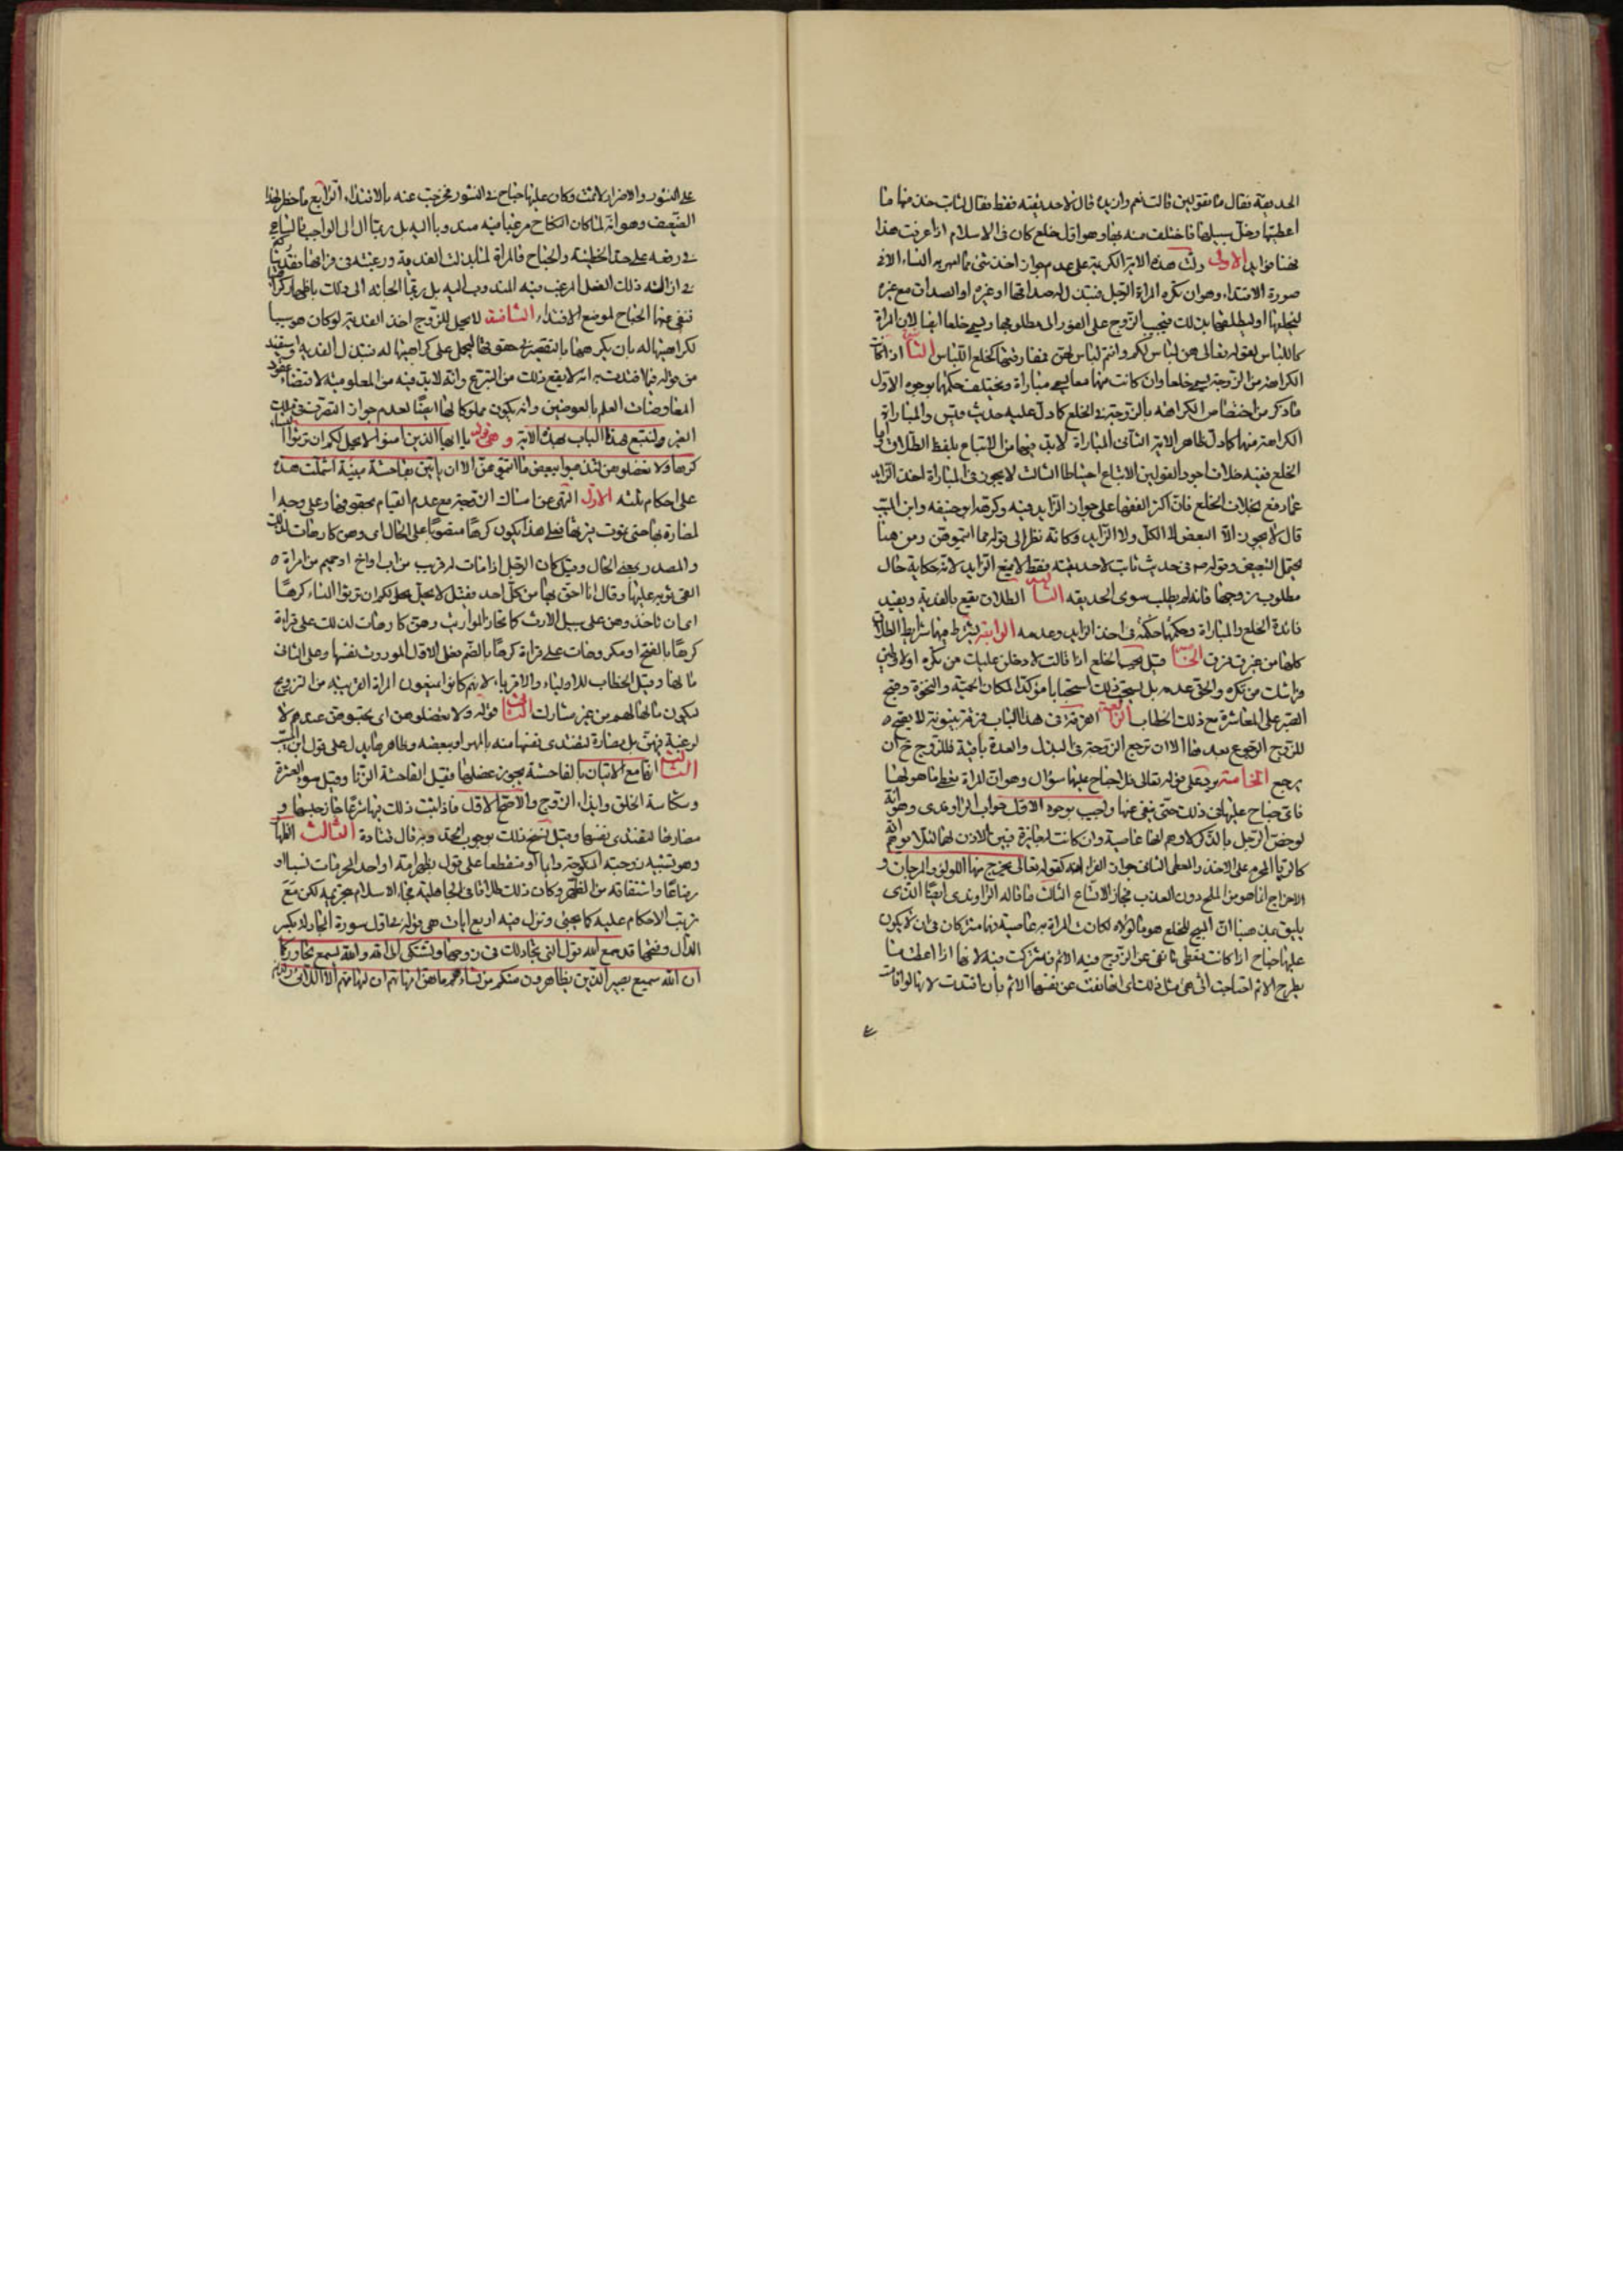 الحديقة فقال ما تقولين قالت نعم وازيده قال لا حديقته فقط فقال لثابت خذ منها ما
اعطيتها وخل سبيلها فاختلعت منه بها وهو اول خلع كان فى الاسلام اذا عرفت هذا
فهنا فوايد الاولى دلت هذه الاية الكريمة على عدم جواز اخذ شئ مما امهر به النساء الا فى
صورة الافتداء وهو ان تكره المراة الرجل فتبذل له صداقها او غيره او الصداق مع غيره
ليخليها او ليطلقها بذلك فيجيب الزوج على الفور الى مطلوبها ويسمى خلعا ايضا لان المراة
كاللباس لقوله تعالى هن لباس لكم وانتم لباس لهن فمفارقتها كخلع اللباس الثانية اذا كانت
الكراهة من الزوجة يسمى خلعا وان كانت منهما معا يسمى مباراة ويختلف حكمهما بوجوه الاول
ما ذكر من اختصاص الكراهة بالزوجة فى الخلع كما دل عليه حديث قيس والمباراة
الكراهة منهما كما دل ظاهر الاية الثانى المباراة لا بد فيها من الاتباع بلفظ الطلاق واما
الخلع ففيه خلاف اجود القولين الاتباع احتياطا الثالث لا يجوز فى المباراة اخذ الزايد
عما دفع بخلاف الخلع فان اكثر الفقهاء على جواز الزايد فيه وكرهه ابو حنيفه وابن المسيب
قال لا يجوز الا البعض لا الكل ولا الزايد وكانه نظر الى قوله مما اتيتموهن ومن هنا
يحتمل التبعيض وقوله صم فى حديث ثابت لا حديقته فقط لا يمنع الزايد لانه حكاية حال
مطلوب زوجها فانه لم يطلب سوى الحديقه الثالثة الطلاق يقع بالفدية ويفيد
فائدة الخلع والمباراة وحكمها حكمه فى اخذ الزايد وعدمه الرابعة يشترط فيها شرايط الطلاق
كلها من غير فرق الخامسة قيل يجب الخلع اذا قالت لادخلن عليك من تكره او لاوطين
فراشك من تكره والحق عدمه بل يستحب ذلك استحبابا مؤكدا لمكان الحمية والنخوة وقبح
الصبر على المعاشرة مع ذلك الخطاب الرابعة الفرقة فى هذا الباب فرقة بينونة لا يصح
للزوج الرجوع بعدها الا ان ترجع الزوجة فى البذل والعدة باقية فللزوج ح ان
يرجع الخامسة يرد على قوله تعالى فلا جناح عليهما سؤال وهو ان المراة تعطى ما هو لها
فاى جناح عليها فى ذلك حتى ينفى عنها واجيب بوجوه الاول جواب الراوندى وهو انه
لو خص الرجل بالذكر لاوهم انها عاصية وان كانت الجايزة فبين الاذن لها لئلا يوهم انه
كالربا المحرم على الاخذ والمعطى الثانى جواب الفراء انه كقوله تعالى يخرج منهما اللؤلؤ والمرجان و
الاخراج انما هو من الملح دون العذب فجاز الاتساع الثالث ما قاله الراوندى ايضا الذى
يليق بمذهبنا ان المبيح للخلع هو ما لولاه لكانت المراة به عاصية وما مثر كان فى ان لا يكون
عليهما جناح اذا كانت تعطى ما نفى عن الزوج فيه الاثم فاشتركت فيه لانها اذا اعطت ما
يطرح الاثم احتاجت الى مثل ذلك اى انها نفت عن نفسها الاثم بان افتدت لانها لو اقامت
على النشوز والاضرار لاثمت وكان عليها جناح فى النشوز فخرجت عنه بالافتداء الرابع ما خطر لهذا
الضعيف وهو انه لما كان النكاح مرغبا فيه مندوبا اليه بل ربما ال الى الواجب فالساعى
فى رفعه على حد الخطيئة والجناح فالمراة لما بذلت الفدية ورغبته فى فراقها فقد رغبتا
فى ازالة ذلك الفضل المرغب فيه المندوب اليه بل ربما الجاته الى ذلك باظهار كراهتها
فنفى عنهما الجناح لموضع الافتداء الثامنة لا يحل للزوج اخذ الفدية لو كان هو سببا
لكراهيتها له بان يكرهها بالتقصير فى حقوقها ليحمل على كراهيتها له فتبذل الفدية ويستفيد
من قوله فيما افتدت به انه لا يقع ذلك من المتبرع وانه لا بد فيه من المعلومية لاقتضاء عقود
المعاوضات العلم بالعوضين وانه يكون مملوكا لها ايضا لعدم جواز التصرف فى ملك
الغير ولنتبع هذا الباب بهذه الاية وهى قوله يا ايها الذين امنوا لا يحل لكم ان ترثوا النساء
كرها ولا تعضلوهن لتذهبوا ببعض ما اتيتموهن الا ان ياتين بفاحشة مبينة اشملت هذه
على احكام ثلثه الاول النهى عن امساك الزوجة مع عدم القيام بحقوقها وعلى وجه ا
لمضارة بها حتى تموت يرثها فعلى هذا يكون كرها منصوبا على الحال اى وهن كارهات لذلك
والمصدر بمعنى الحال وقيل كان الرجل اذا مات له قريب من اب او اخ او حميم من امراة
القى ثوبه عليها وقال انا احق بها من كل احد فقيل لا يحل لكم ان ترثوا النساء كرها
اى ان تاخذوهن على سبيل الارث كما تحاز الموارث وهن كارهات لذلك على قراءة
كرها بالفتح او مكروهات على قراءة كرها بالضم فعلى الاول الموروث نفسها وعلى الثانى
مالها وقيل الخطاب للاولياء والاقرباء لانهم كانوا يمنعون المراة القريبة من التزويج
ليكون مالها لهم من غير مشارك الثانى قوله ولا تعضلوهن اى تحبسوهن عندكم لا
لرغبة فيهن بل مضارة لتفتدى نفسها منه بالمهر او ببعضه وظاهرها يدل على قول ابن المسيب
الثانية انها مع الاتيان بالفاحشة يجوز عضلها فقيل الفاحشة الزنا وقيل سوء العشرة
وشكاسة الخلق وايذاء الزوج والاصح الاول فاذا ثبت ذلك بها شرعا جاز حبسها و
مضارتها لتفتدى نفسها وقيل نسخ ذلك بوجوب الحد وبه قال قتادة الثالث الظهار
وهو تشبيه زوجته المنكوحة دايما او منقطعا على قول بظهر امه او احد المحرمات نسبا او
رضاعا واشتقاقه من الظهر وكان ذلك طلاقا فى الجاهلية فجاء الاسلام بتحريمه لكن مع
ترتب الاحكام عليه كما يجئ ونزل فيه اربع ايات هى قوله تعالى اول سورة المجادلة بكسر
الدال وفتحها قد سمع الله قول التى تجادلك فى زوجها وتشتكى الى الله والله يسمع تحاوركما
ان الله سميع بصير الذين يظاهرون منكم من نسائهم ما هن امهاتهم ان امهاتهم الا اللائى ولدنهم